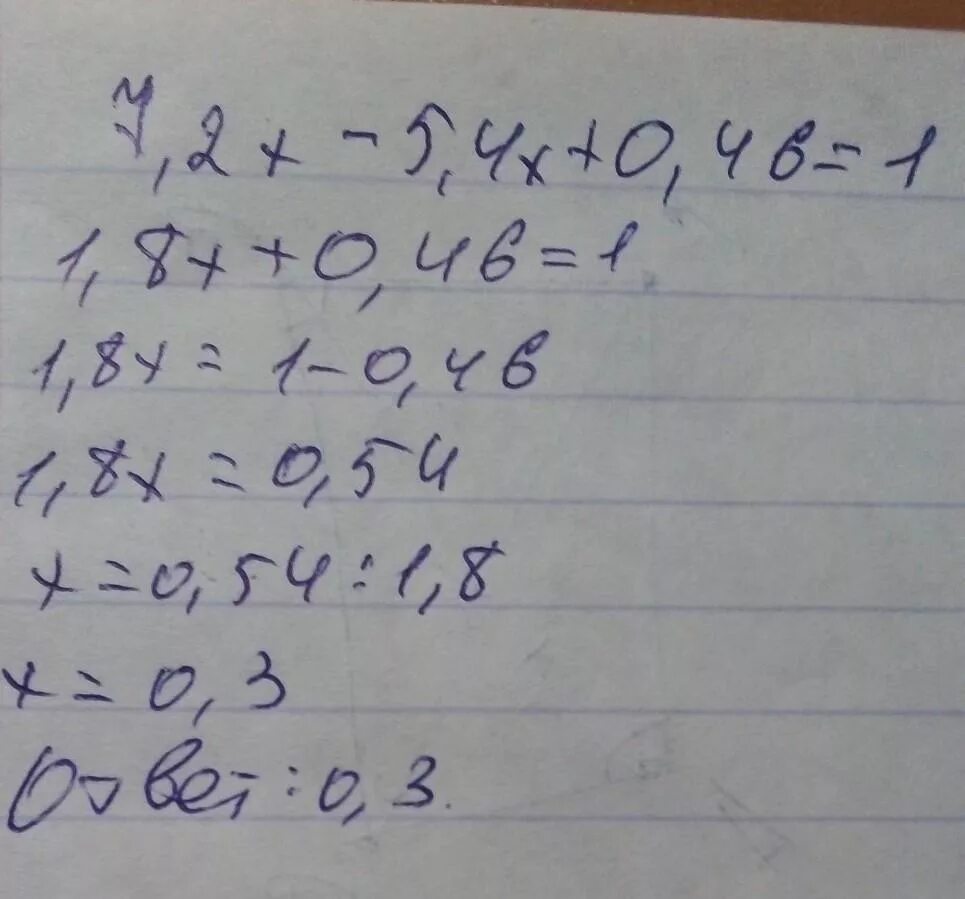 7,2x - 5,4x + 0,46 = 1
1,8x + 0,46 = 1
1,8x = 1 - 0,46
1,8x = 0,54
x = 0,54 : 1,8
x = 0,3
Ответ: 0,3.